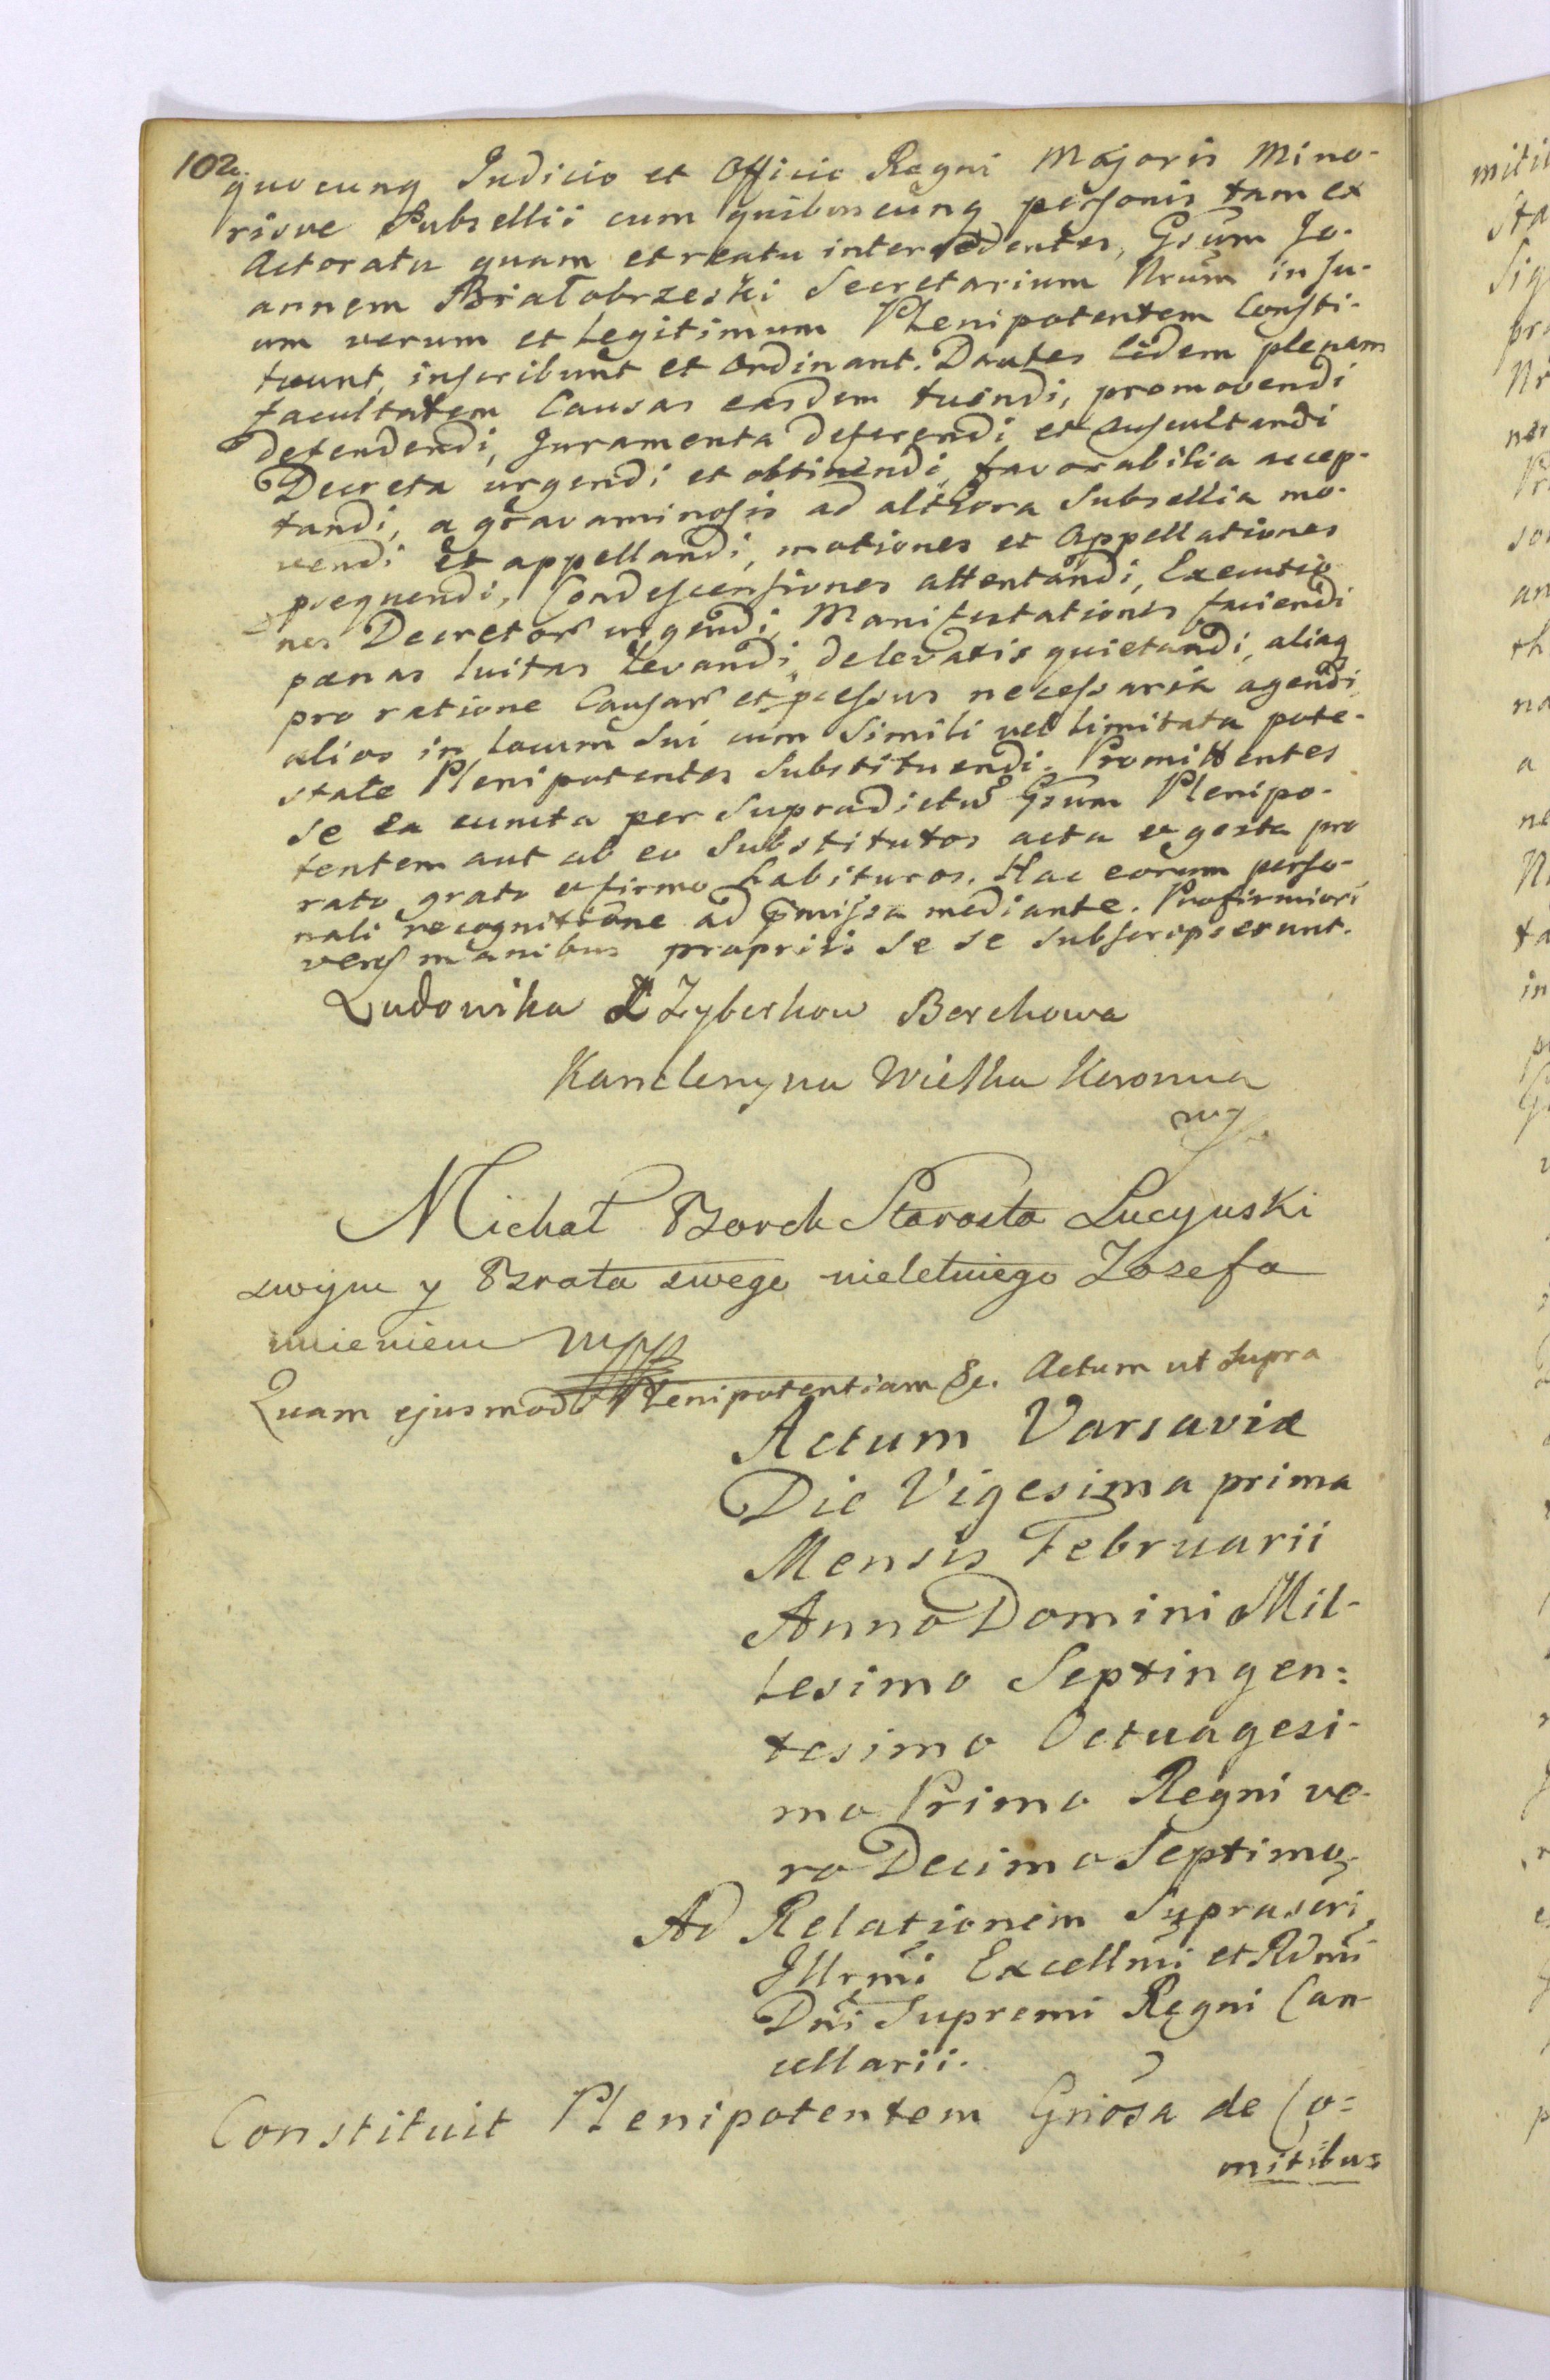 102.
quocunq Judicio et Officio Regni Majoris Mino-
risve Subsellii cum quibuscunq personis tam ex
Actoratu quam et reatu intercedentes, Gsum Jo-
annem Białobrzeski Secretarium Nrum in su-
um verum et legitimum Plenipotentem Consti-
tuunt, inscribunt et Ordinant. Dantes Eidem plenam
facultatem Causas easdem tuendi, promovendi
defendendi, Juramenta deferendi et auscultandi
Decreta urgendi et obtinendi, favorabilia accep-
tandi, a gravaminosis ad altiora Subsellia mo-
vendi et appellandi, motiones et Appellationes
psequendi, Condescensiones attentandi, Executio-
nes Decretor urgendi, Manifestationes faciendi
pœnas luitas levandi, de levatis quietandi, aliaq
pro ratione Causar et pcessus necessaria agendi
alios in locum Sui cum Simili vel limitata pote-
state Plenipotentes Substituendi. Promittentes
se ea cuncta per Supradictu Gsum Plenipo-
tentem aut ab eo Substitutos acta et gesta pro
rato grato et firmo habituros. Hac eorum perso-
nali recognitione ad pmissa mediante. Pro firmiori
vero manibus propriis se se subscripserunt.
Ludowika Z Zyberkow Borchowa
Kanclerzyna Wielka Koronna
mp.
Michał Borch Starosta Lucynski
swym y Brata swego nieletniego Jozefa
imieniem mpp
Quam ejusmodi Plenipotentiam &c. Actum ut Supra
Actum Varsaviæ
Die Vigesima prima
Mensis Februarii
Anno Domini Mil-
lesimo Septingen=
tesimo Octuagesi-
mo Primo Regni ve-
ro Decimo Septimo
Ad Relationem Suprascri
Illrmi Excellmi et Rdmi
Dni Supremi Regni Can-
cellarii.
Constituit Plenipotentem Gnosa de Co=
mitibus